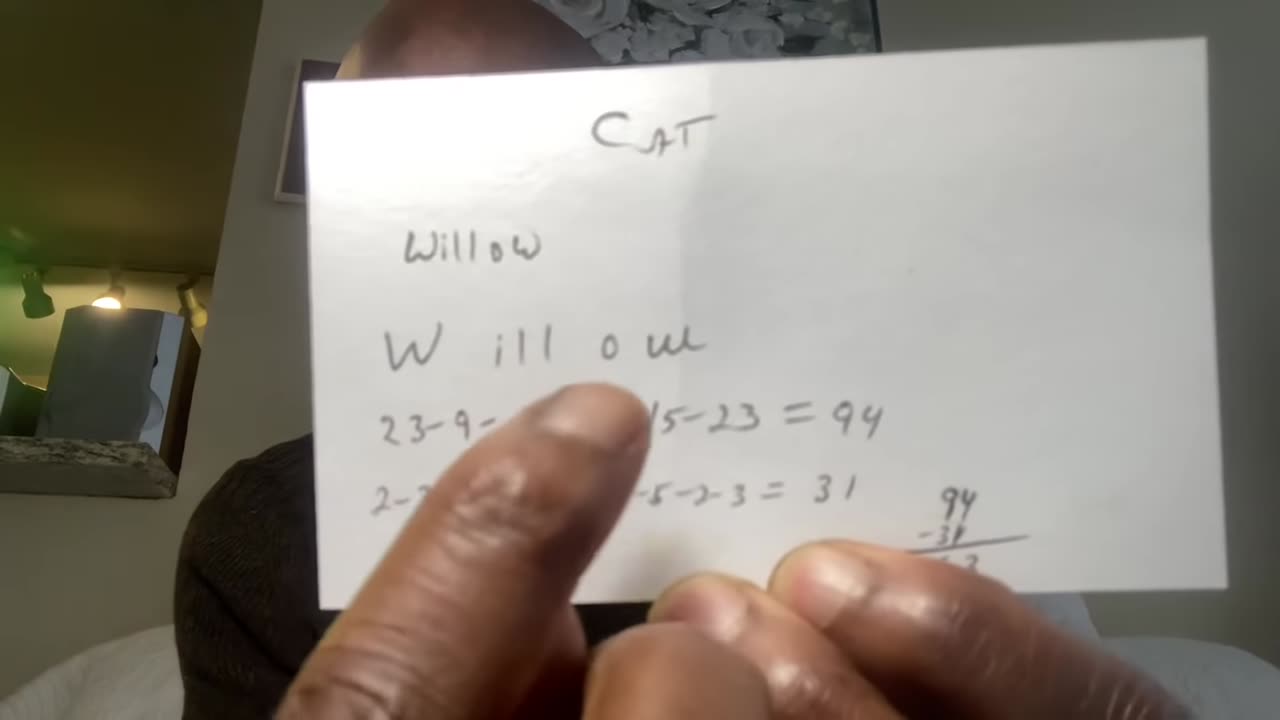 CAT
Willow
W ill ow
23-9- 15-23 = 94
2- -5-2-3 = 31
94
-31